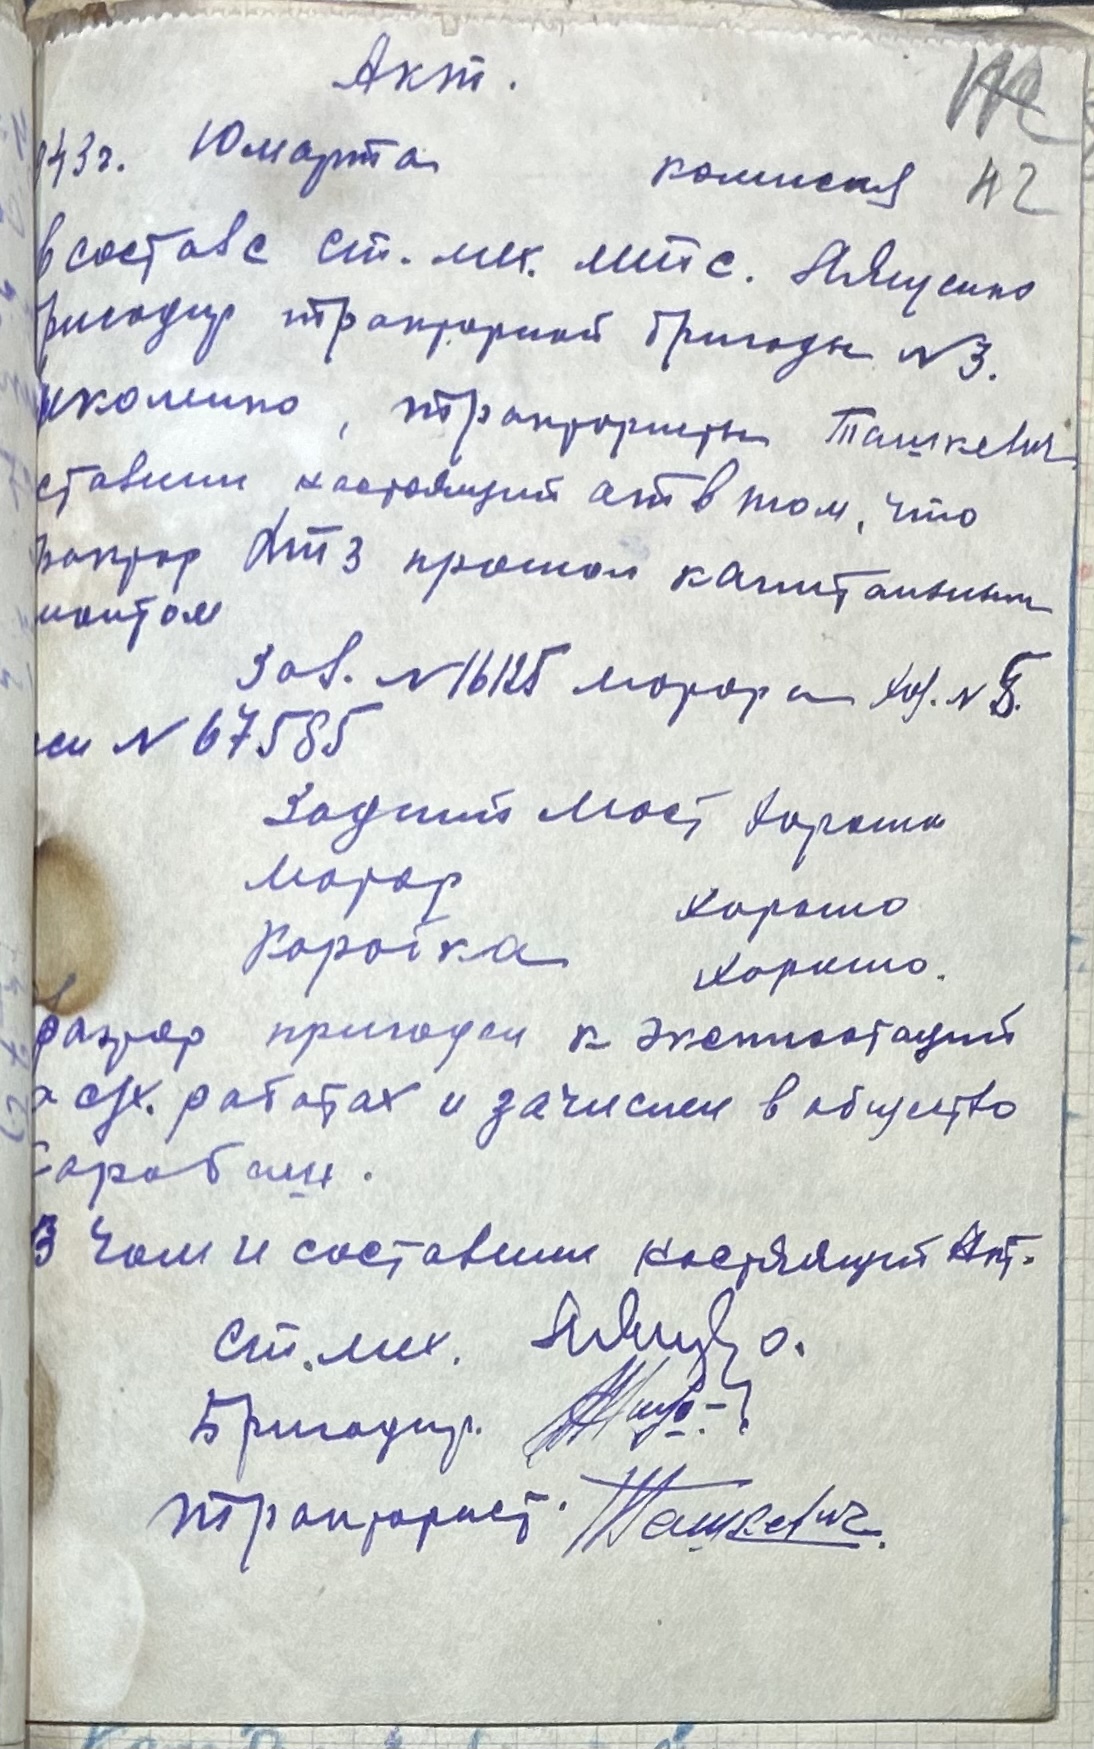 Акт.
943г. 10 марта комисия 42
в составе ст. мех. мтс.
ригадир тракторной бригады №3.
, трактористы Ташкевич
ставили настоящий акт в том, что
рактор ХТЗ прошол капитальным
монтом
Зав. №16125 мотора хоз. №
си №67585
Задний мост хороши
Мотор хорошо
Коробка хорошо.
рактор пригоден к эксплоатаций
а с/х. работах и зачислен в общество
.
В чом и составили настяящий Акт.
Ст. мех.
Бригадир.
тракторист. Ташкевич.